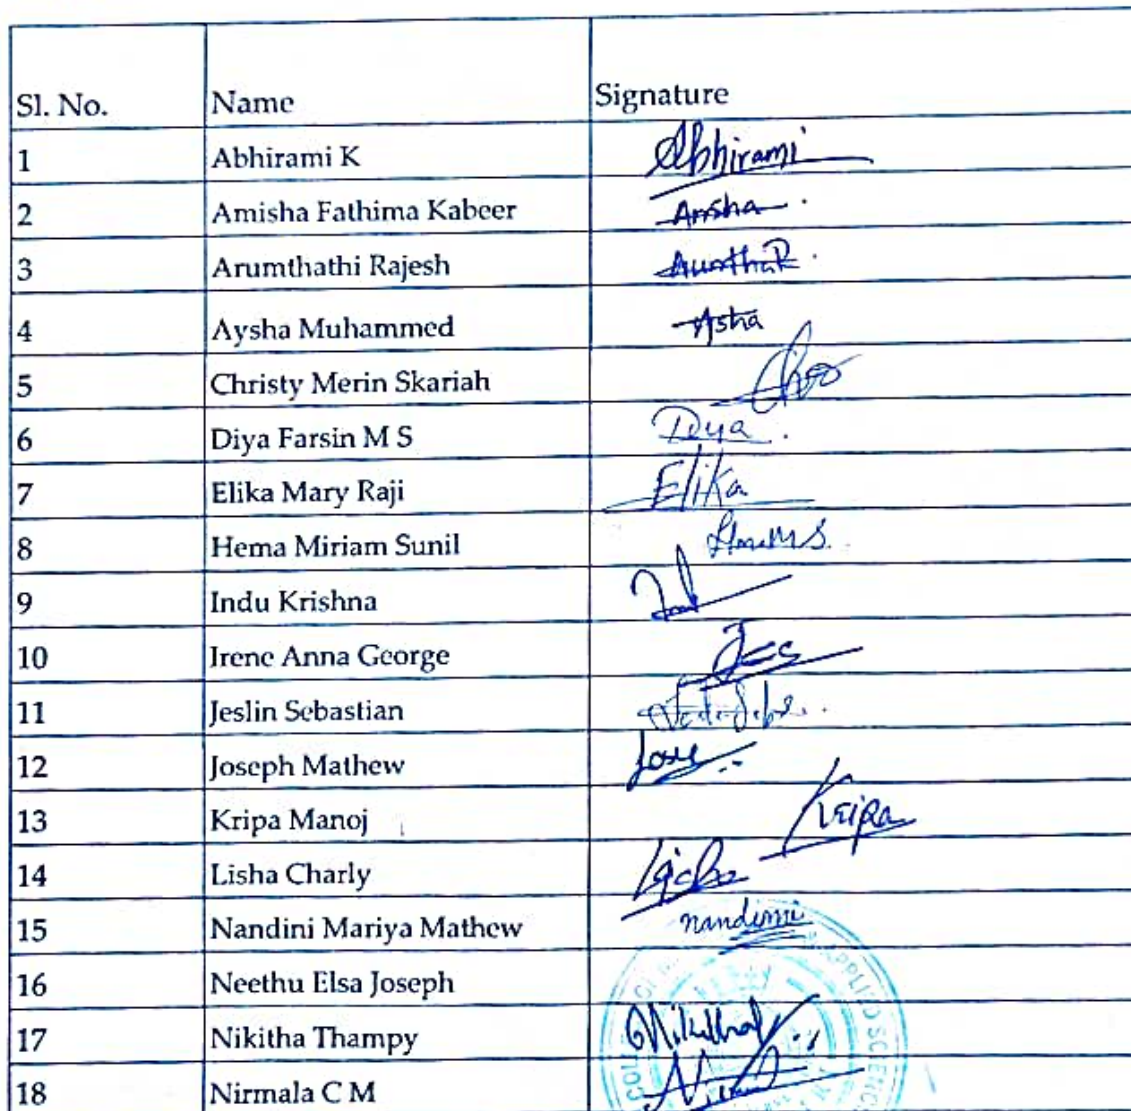 Sl. No. Name Signature
1 Abhirami K Abhirami
2 Amisha Fathima Kabeer Amsha
3 Arumthathi Rajesh
4 Aysha Muhammed Aysha
5 Christy Merin Skariah
6 Diya Farsin M S Diya
7 Elika Mary Raji Elika
8 Hema Miriam Sunil
9 Indu Krishna
10 Irene Anna George
11 Jeslin Sebastian
12 Joseph Mathew
13 Kripa Manoj Kripa
14 Lisha Charly
15 Nandini Mariya Mathew nandini
16 Neethu Elsa Joseph
17 Nikitha Thampy
18 Nirmala C M